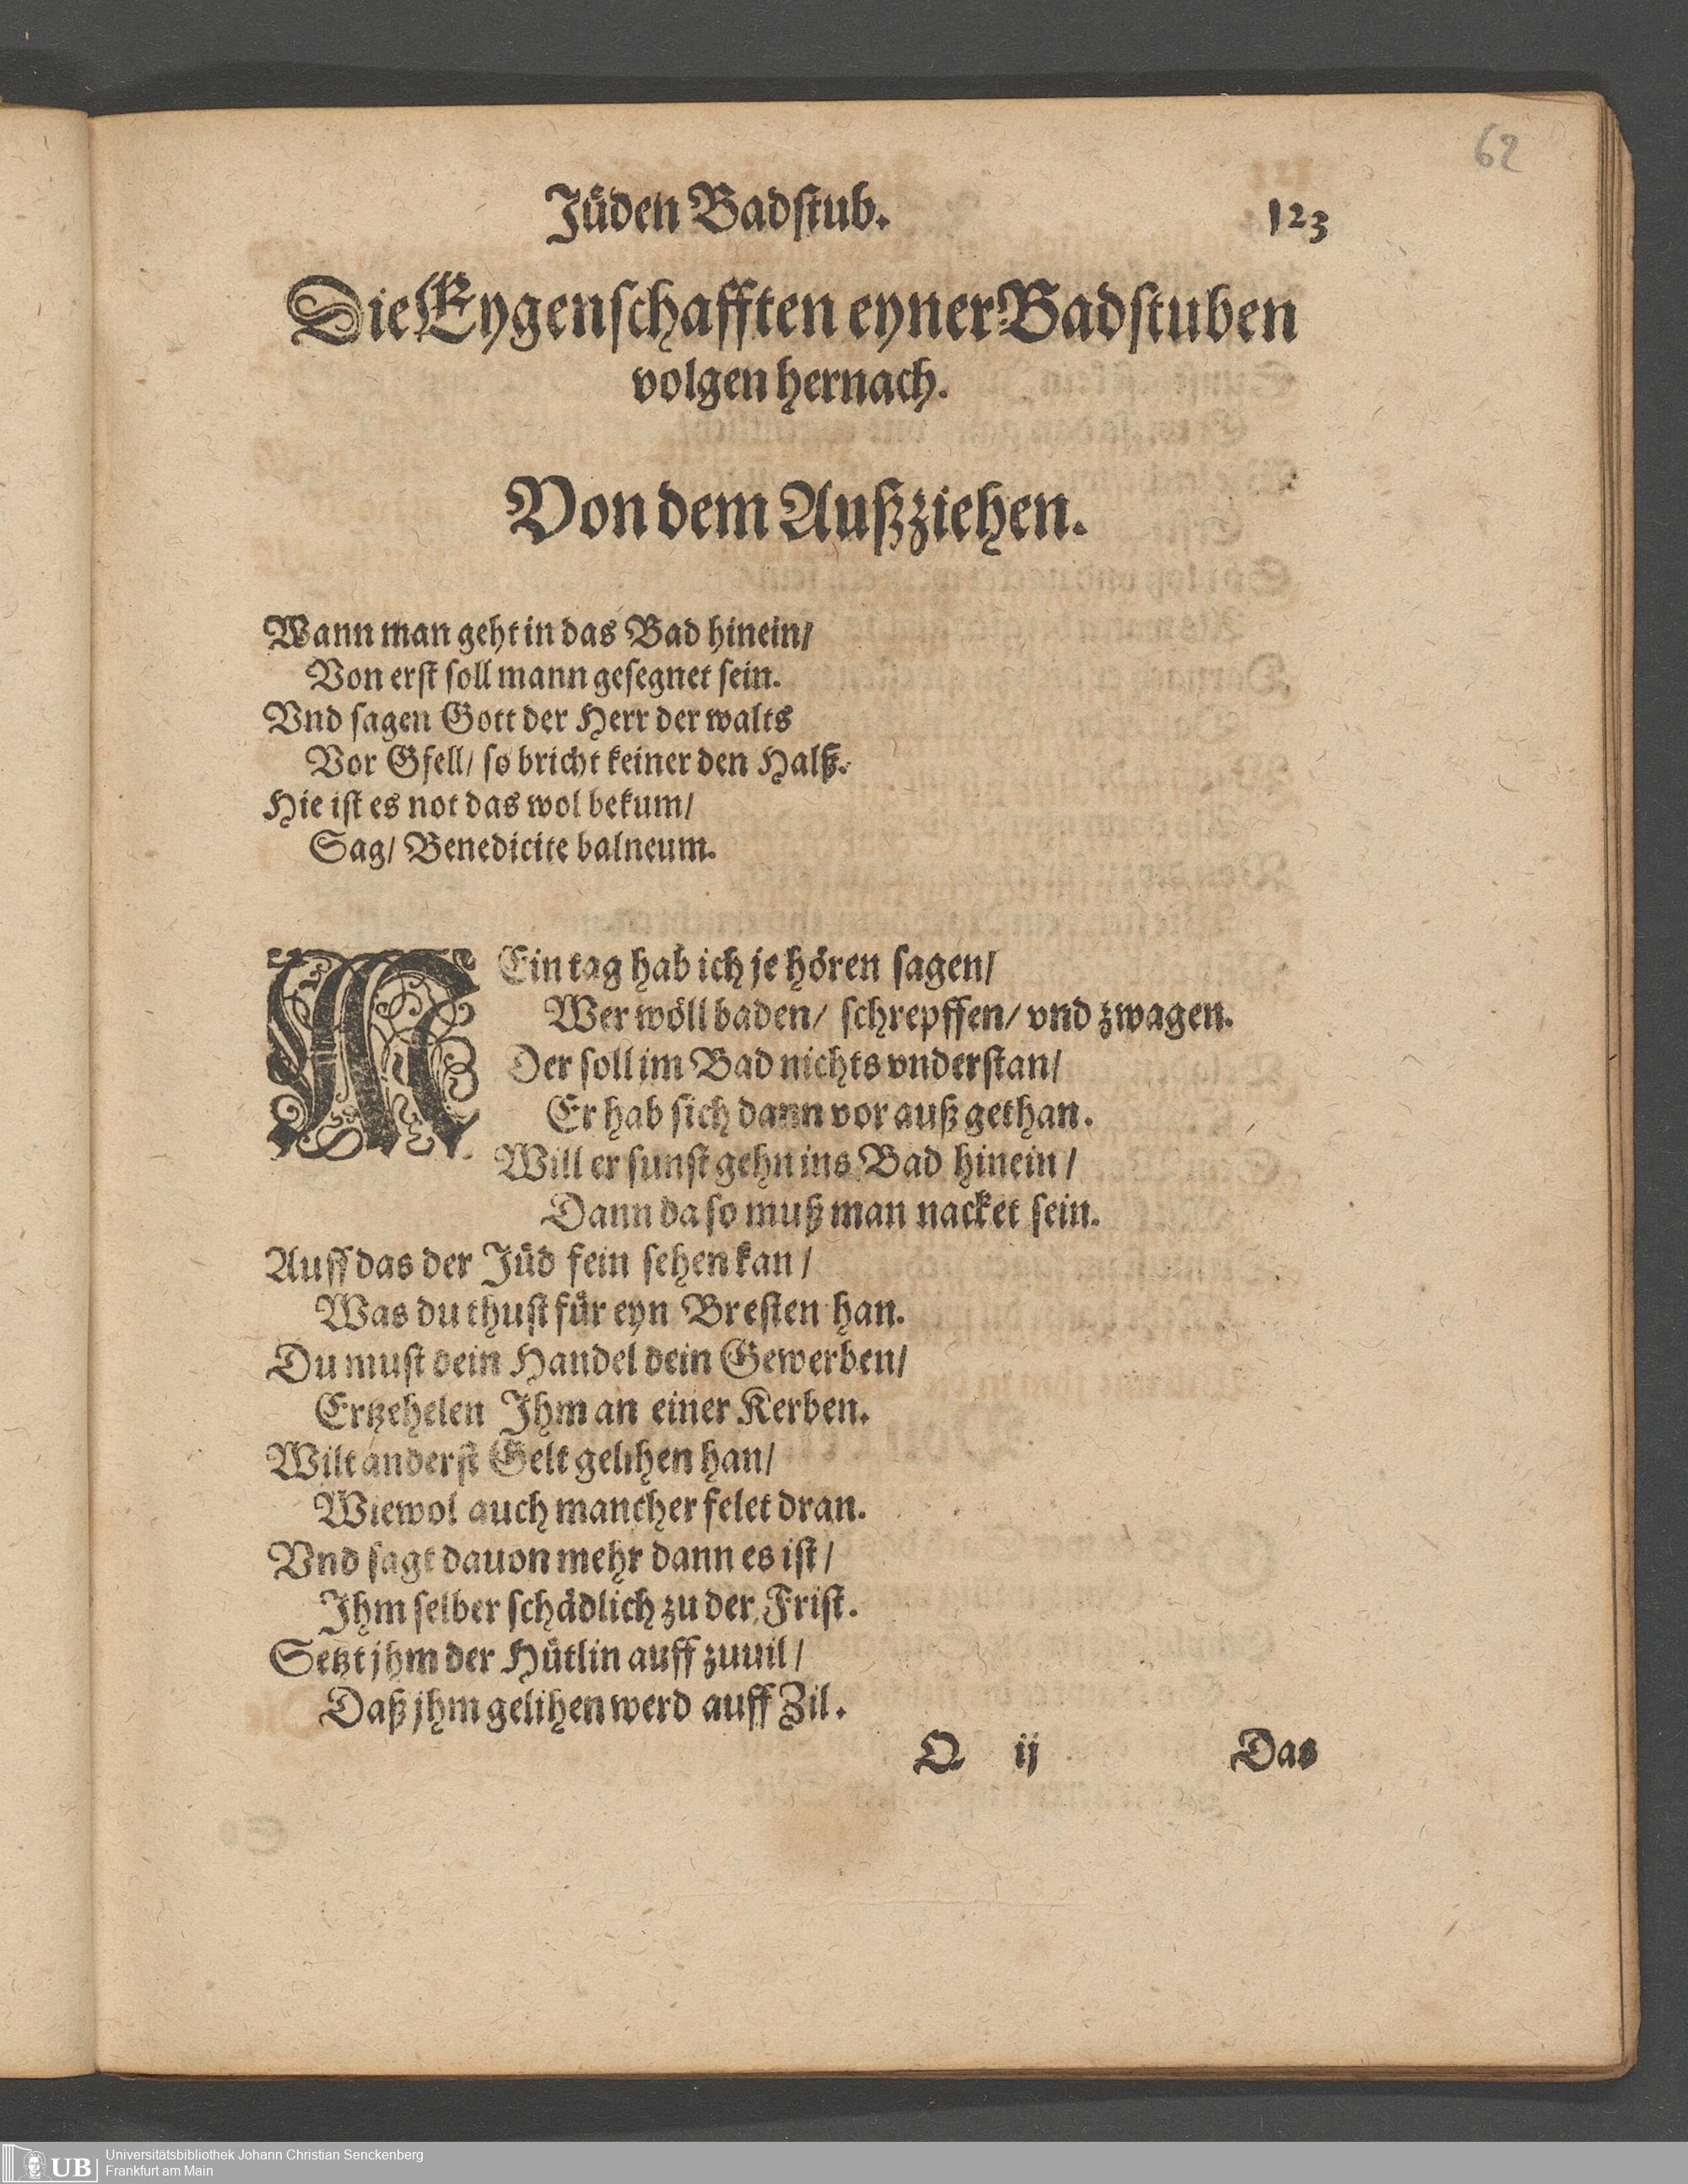 62
Jüden Badstub. 123
Die Eygenschafften eyner Badstuben
volgen hernach.
Von dem Außziehen.
Wann man geht in das Bad hinein/
Von erst soll mann gesegnet sein.
Vnd sagen Gott der Herr der walts
Vor Gfell/ so bricht keiner den Halß.
Hie ist es not das wol bekum/
Sag/ Benedicite balneum.
MEin tag hab ich je hören sagen/
Wer wöll baden/ schrepffen/ vnd zwagen.
Der soll im Bad nichts vnderstan/
Er hab sich dann vor auß gethan.
Will er sunst gehn ins Bad hinein/
Dann da so muß man nacket sein.
Auff das der Jüd fein sehen kan/
Was du thust für eyn Bresten han.
Du must dein Handel dein Gewerben/
Ertzehelen Ihm an einer Kerben.
Wilt anderst Gelt gelihen han/
Wiewol auch mancher felet dran.
Vnd sagt dauon mehr dann es ist/
Ihm selber schädlich zu der Frist.
Setzt jhm der Hütlin auff zuuil/
Daß jhm gelihen werd auff Zil.
Q ij Das
UB Universitätsbibliothek Johann Christian Senckenberg
Frankfurt am Main